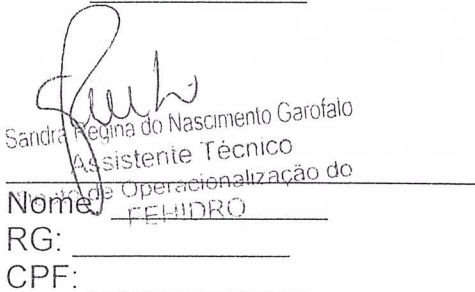 Sandra Regina do Nascimento Garofalo
Assistente Técnico
de Operacionalização do
FEHIDRO
Nome
RG:
CPF: